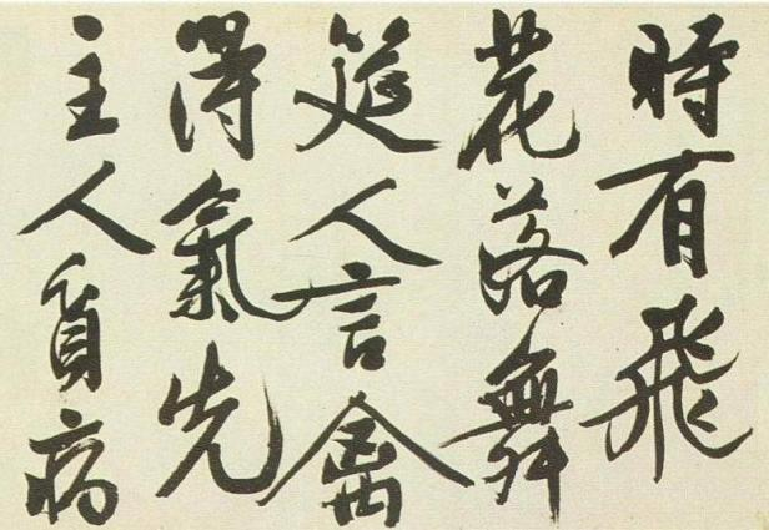 時有飛
花落舞
筵人言禽
得氣先
主人貧病